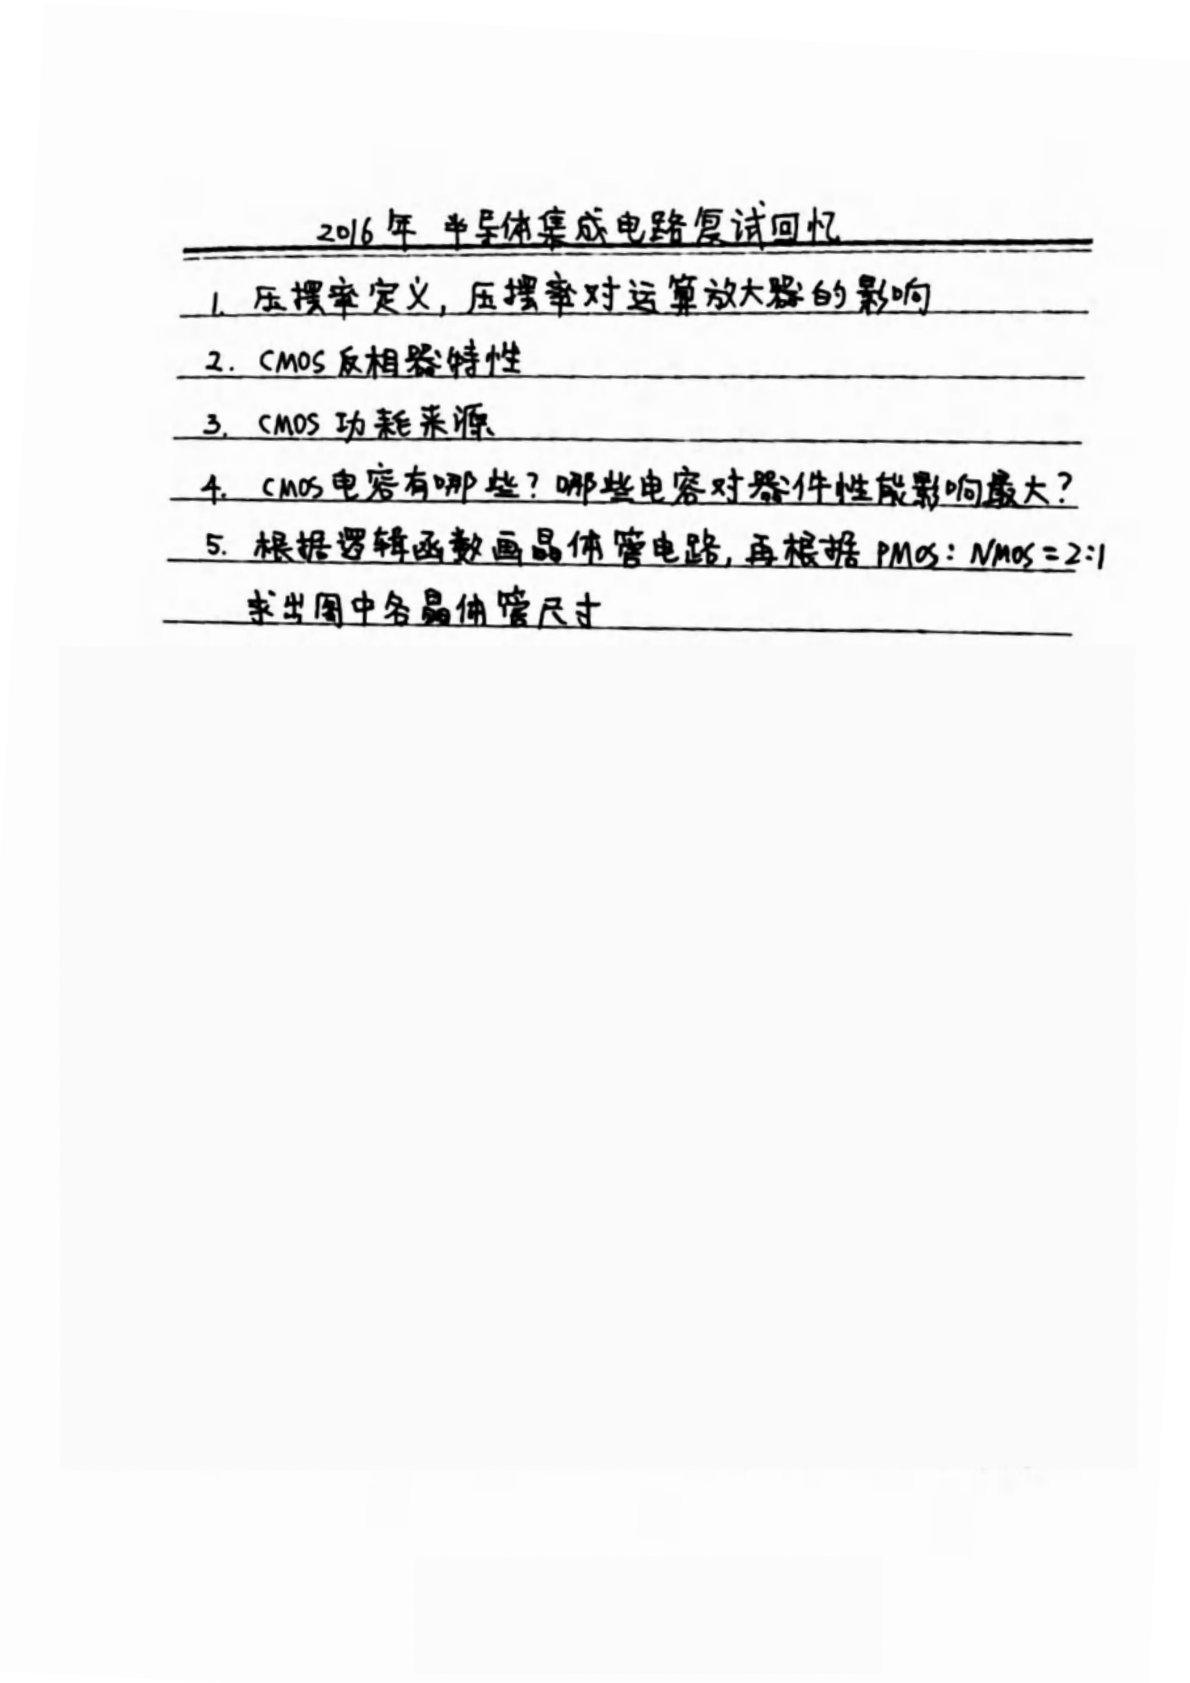 2016年 半导体集成电路复试回忆
1. 压摆率定义, 压摆率对运算放大器的影响
2. CMOS反相器特性
3. CMOS 功耗来源
4. CMOS电容有哪些? 哪些电容对器件性能影响最大?
5. 根据逻辑函数画晶体管电路, 再根据 PMOS: NMOS=2:1
求出图中各晶体管尺寸